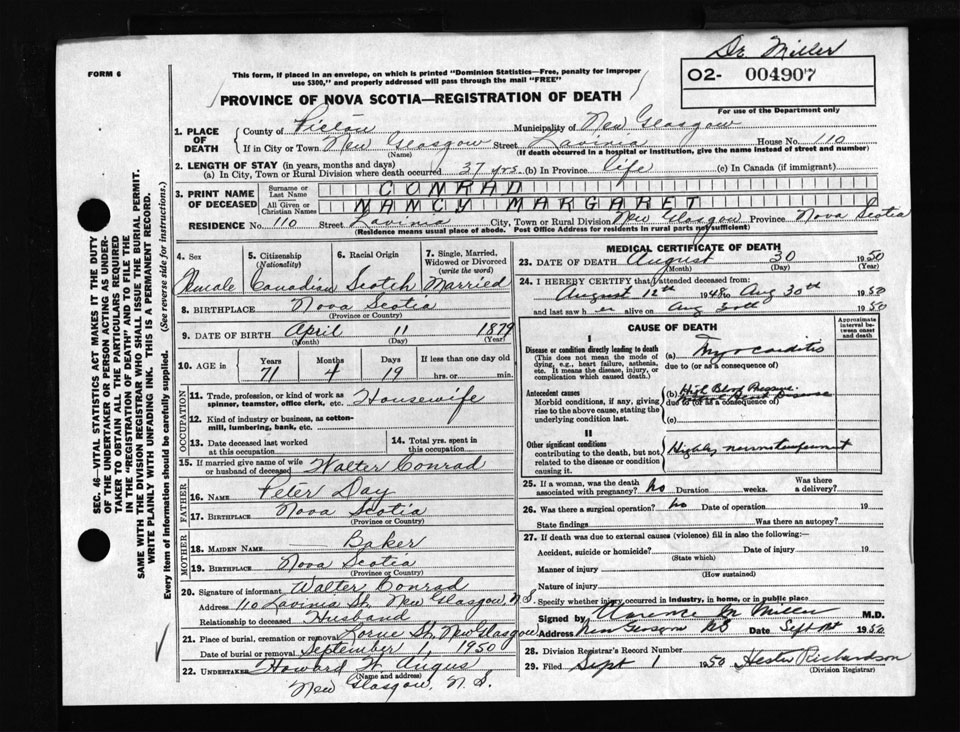 Dr. Miller
FORM 6
This form, if placed in an envelope, on which is printed "Dominion Statistics—Free, penalty for improper
use $300," and properly addressed will pass through the mail "FREE"
O2- 004907
For use of the Department only
PROVINCE OF NOVA SCOTIA—REGISTRATION OF DEATH
1. PLACE OF DEATH County of Pictou Municipality of New Glasgow
If in City or Town New Glasgow Street Lavinia House No. 110
(Name) (If death occurred in a hospital or institution, give the name instead of street and number)
2. LENGTH OF STAY (in years, months and days)
(a) In City, Town or Rural Division where death occurred 37 yrs. (b) In Province life (c) In Canada (if immigrant)
3. PRINT NAME OF DECEASED Surname or Last Name CONRAD
All Given or Christian Names NANCY MARGARET
RESIDENCE No. 110 Street Lavinia City, Town or Rural Division New Glasgow Province Nova Scotia
(Residence means usual place of abode. Post Office Address for residents in rural parts not sufficient)
4. Sex 5. Citizenship (Nationality) 6. Racial Origin 7. Single, Married, Widowed or Divorced (write the word)
Female Canadian Scotch Married
8. BIRTHPLACE Nova Scotia
(Province or Country)
9. DATE OF BIRTH April 11 1879
(Month) (Day) (Year)
10. AGE in Years Months Days If less than one day old
71 4 19 hrs. or min.
OCCUPATION
11. Trade, profession, or kind of work as spinner, teamster, office clerk, etc. Housewife
12. Kind of industry or business, as cotton-mill, lumbering, bank, etc.
13. Date deceased last worked at this occupation
14. Total yrs. spent in this occupation
15. If married give name of wife or husband of deceased Walter Conrad
FATHER
16. NAME Peter Day
17. BIRTHPLACE Nova Scotia
(Province or Country)
MOTHER
18. MAIDEN NAME Baker
19. BIRTHPLACE Nova Scotia
(Province or Country)
20. Signature of informant Walter Conrad
Address 110 Lavinia St. New Glasgow, N.S.
Relationship to deceased Husband
21. Place of burial, cremation or removal Lorne St, New Glasgow
Date of burial or removal September 1, 1950
22. UNDERTAKER Howard W. Angus
(Name and address)
New Glasgow, N.S.
MEDICAL CERTIFICATE OF DEATH
23. DATE OF DEATH August 30 1950
(Month) (Day) (Year)
24. I HEREBY CERTIFY that I attended deceased from:
August 12th 1948 to Aug 30th 1950
and last saw her alive on Aug 30th 1950
CAUSE OF DEATH
Approximate interval between onset and death
I
Disease or condition directly leading to death
(This does not mean the mode of dying, e.g., heart failure, asthenia, etc. It means the disease, injury, or complication which caused death.)
(a) Myocarditis
due to (or as a consequence of)
Antecedent causes
Morbid conditions, if any, giving rise to the above cause, stating the underlying condition last.
(b) High Blood Pressure
due to (or as a consequence of)
(c)
II
Other significant conditions
contributing to the death, but not related to the disease or condition causing it.
Highly
25. If a woman, was the death associated with pregnancy? No Duration weeks. Was there a delivery?
26. Was there a surgical operation? No Date of operation 19
State findings Was there an autopsy?
27. If death was due to external causes (violence) fill in also the following:
Accident, suicide or homicide? Date of injury 19
(State which)
Manner of injury
(How sustained)
Nature of injury
Specify whether injury occurred in industry, in home, or in public place
Signed by Clarence M Miller M.D.
Address New Glasgow NS Date Sept 1st 1950
28. Division Registrar's Record Number
29. Filed Sept 1 1950 Hester Richardson
(Division Registrar)
SEC. 46—VITAL STATISTICS ACT MAKES IT THE DUTY
OF THE UNDERTAKER OR PERSON ACTING AS UNDER-
TAKER TO OBTAIN ALL THE PARTICULARS REQUIRED
IN THE "REGISTRATION OF DEATH" AND TO FILE THE
SAME WITH THE DIVISION REGISTRAR WHO SHALL ISSUE THE BURIAL PERMIT.
WRITE PLAINLY WITH UNFADING INK. THIS IS A PERMANENT RECORD.
Every item of information should be carefully supplied. (See reverse side for instructions.)